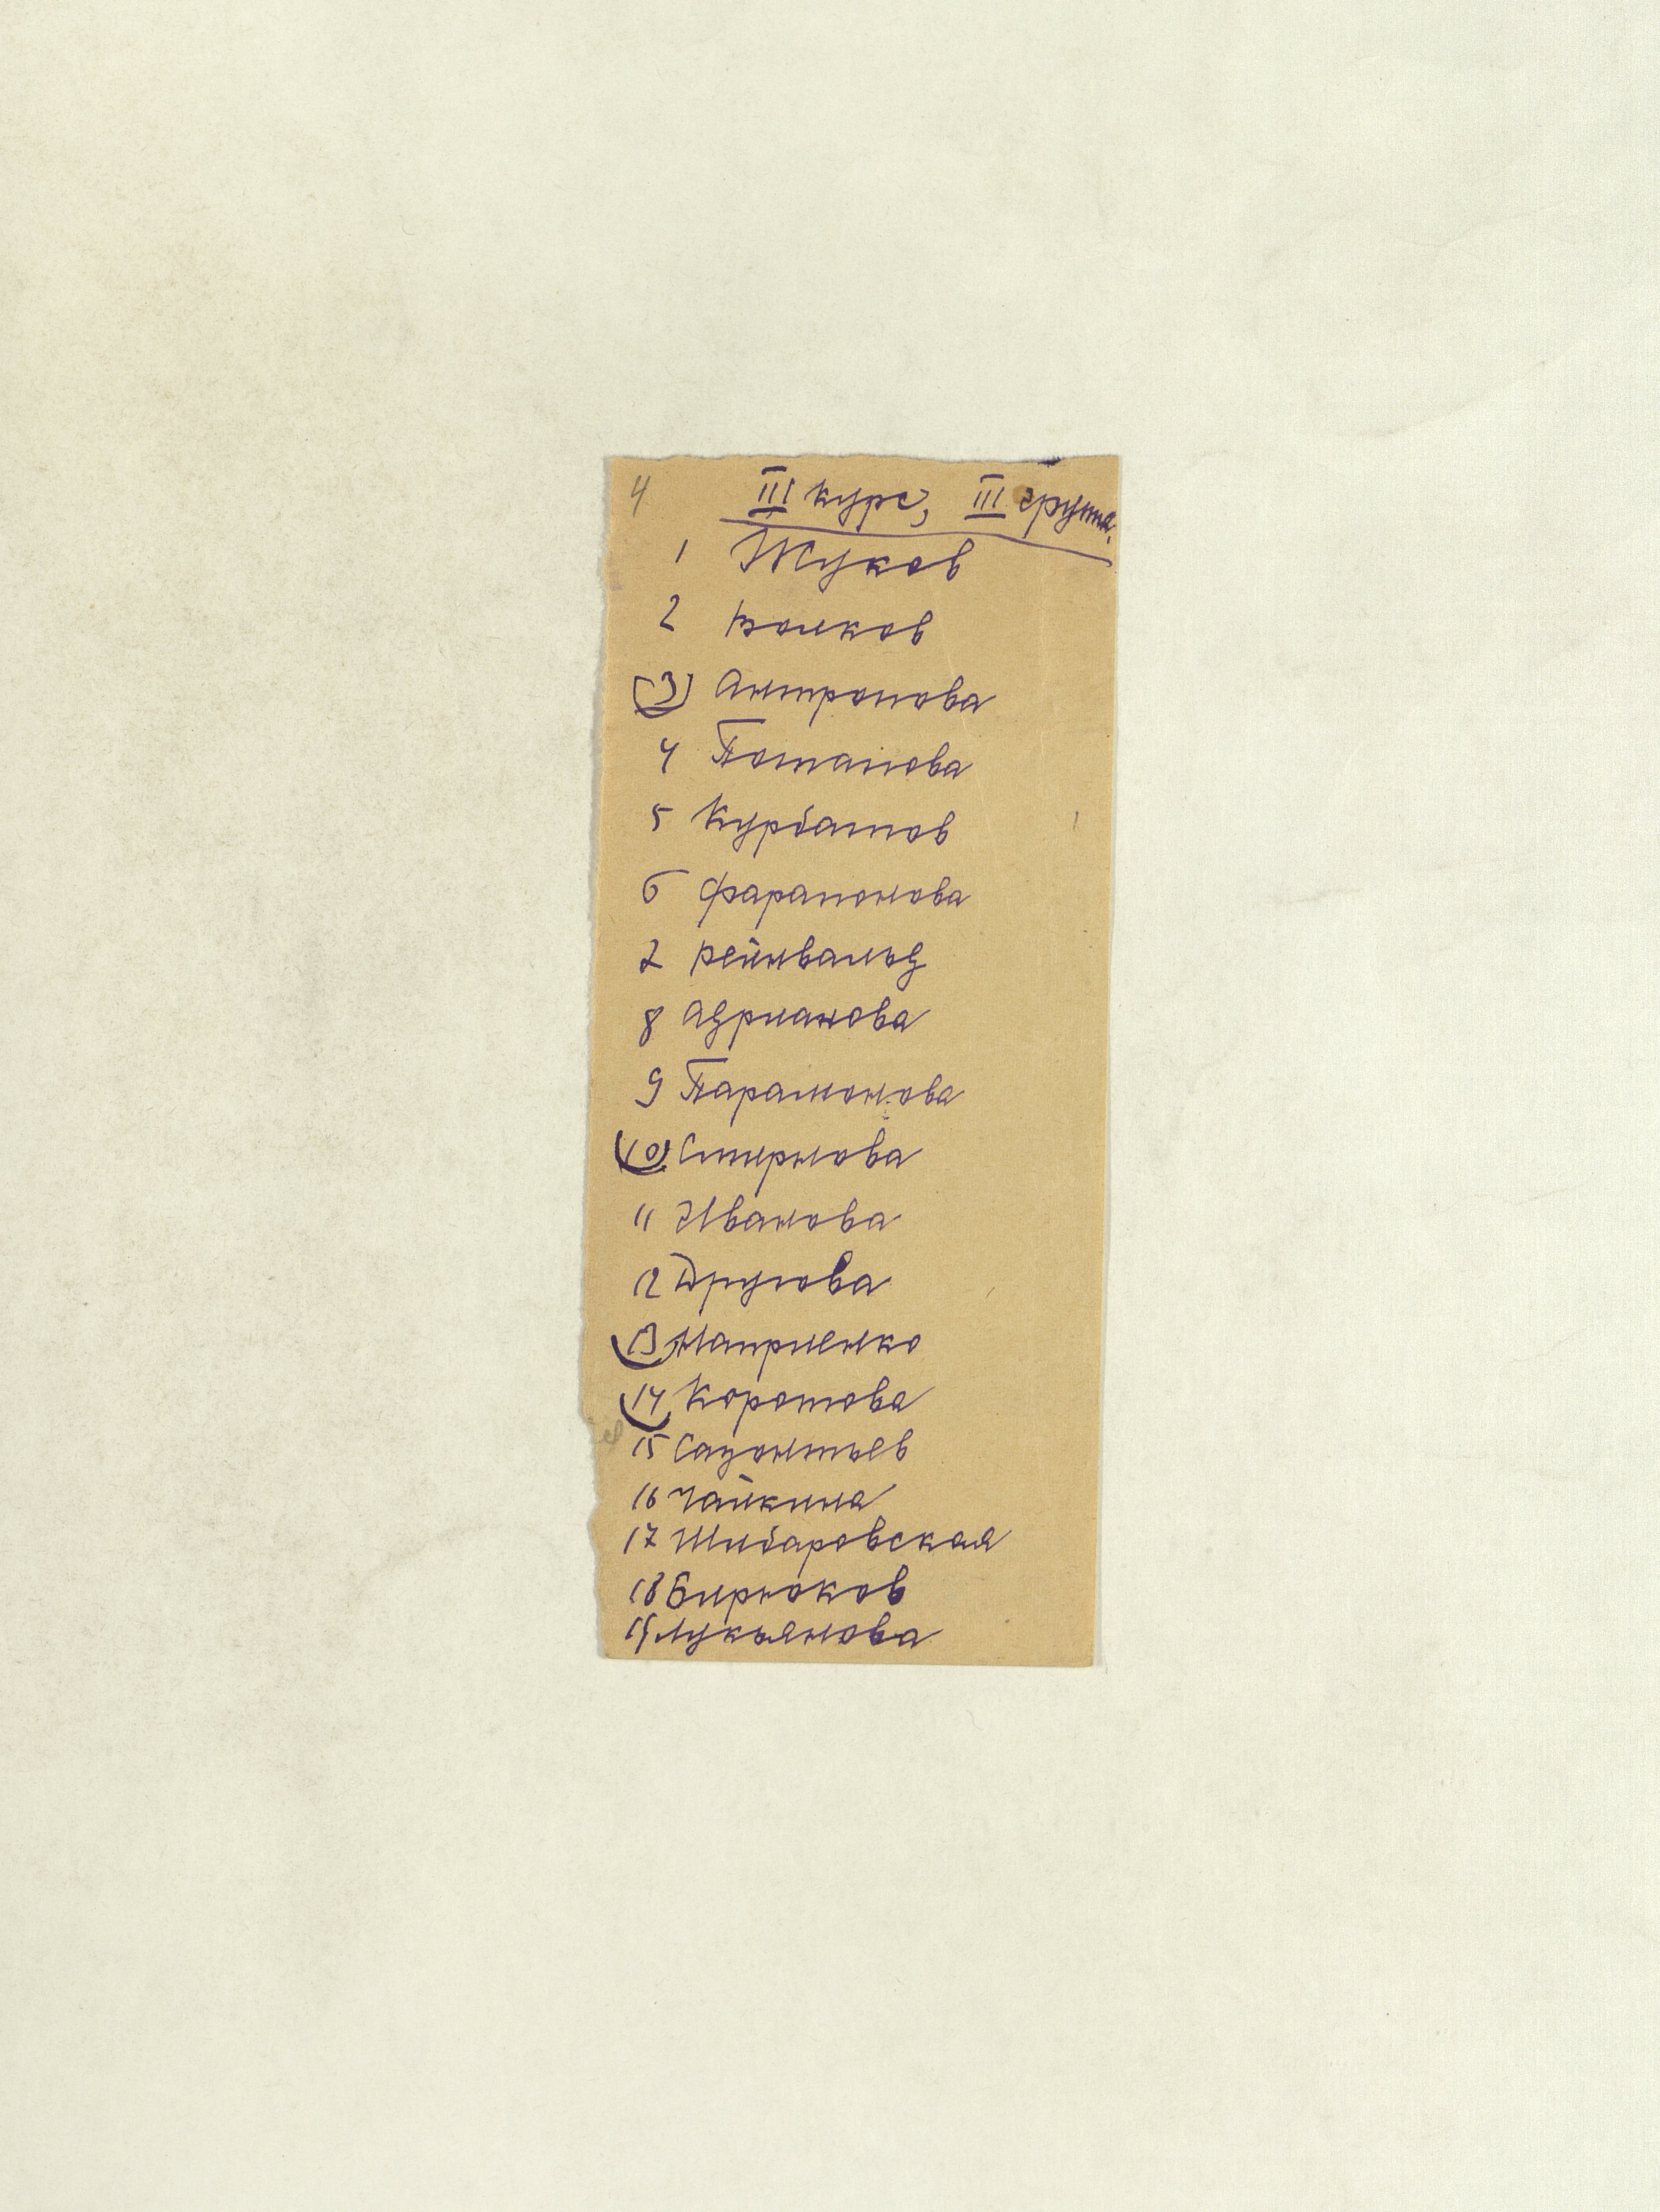 4
III курс, III группа.
1 Жуков
2 Волков
3 Антропова
4 Потапова
5 Курбатов
6 Фарапонова
7 Рейнвальд
8 Адрианова
9 Парамонова
10 Смирнова
11 Иванова
12 Другова
13 Наприенко
14 Коротова
15 Сазонтьев
16 Чайкина
17 Шибаровская
18 Бирюков
19 Лукьянова